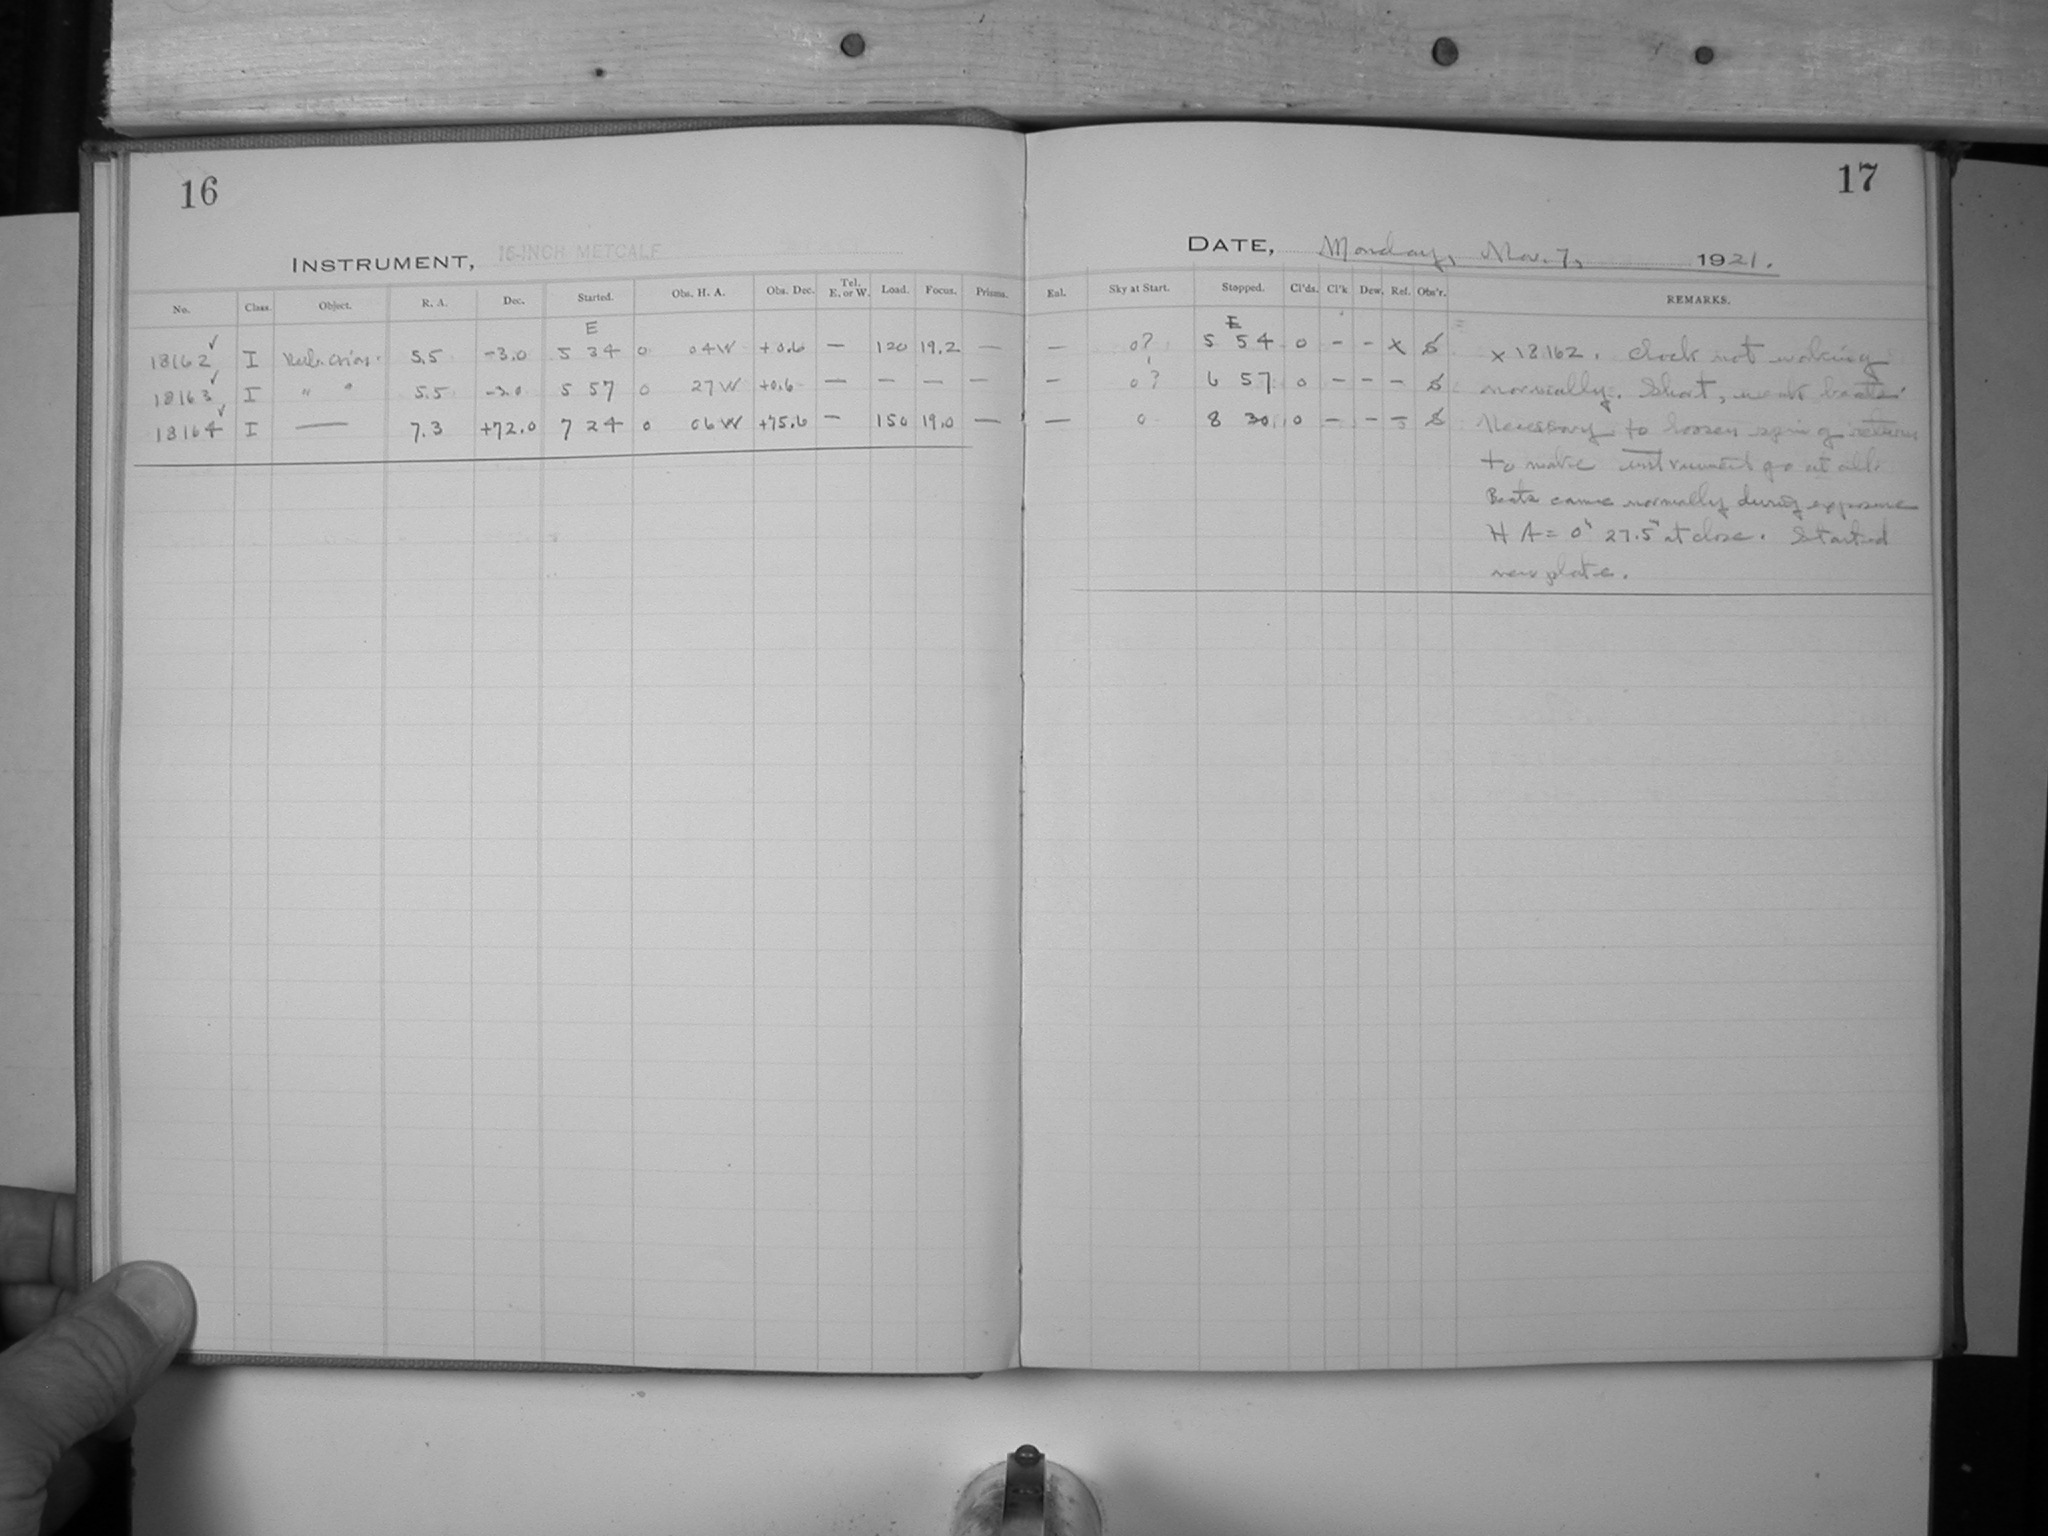 16
INSTRUMENT, 16-INCH METCALF
No. Class. Object. R. A. Dec. Started. Obs. H. A. Obs. Dec. Tel. E. or W. Load. Focus. Prisms.
E
18162 ✓ I Neb. Orion. 5.5 -3.0 5 34 0 04W +0.6 — 120 19.2 —
18163 ✓ I " " 5.5 -3.0 5 57 0 27W +0.6 — — — —
18164 ✓ I — 7.3 +72.0 7 24 0 06W +75.6 — 150 19.0 —
17
DATE, Monday, Nov. 7, 1921.
Enl. Sky at Start. Stopped. Cl'ds. Cl'k Dew. Ref. Obs'r. REMARKS.
E
— 0? 5 54 0 - - x x 18162. Clock not working
— 0? 6 57 0 - - - normally. Short, weak beats.
— 0 8 30 0 - - - Necessary to loosen spring
to make instrument go at all.
Beats came normally during exposure
H A = 0h 27.5m at close. Started
new plate.